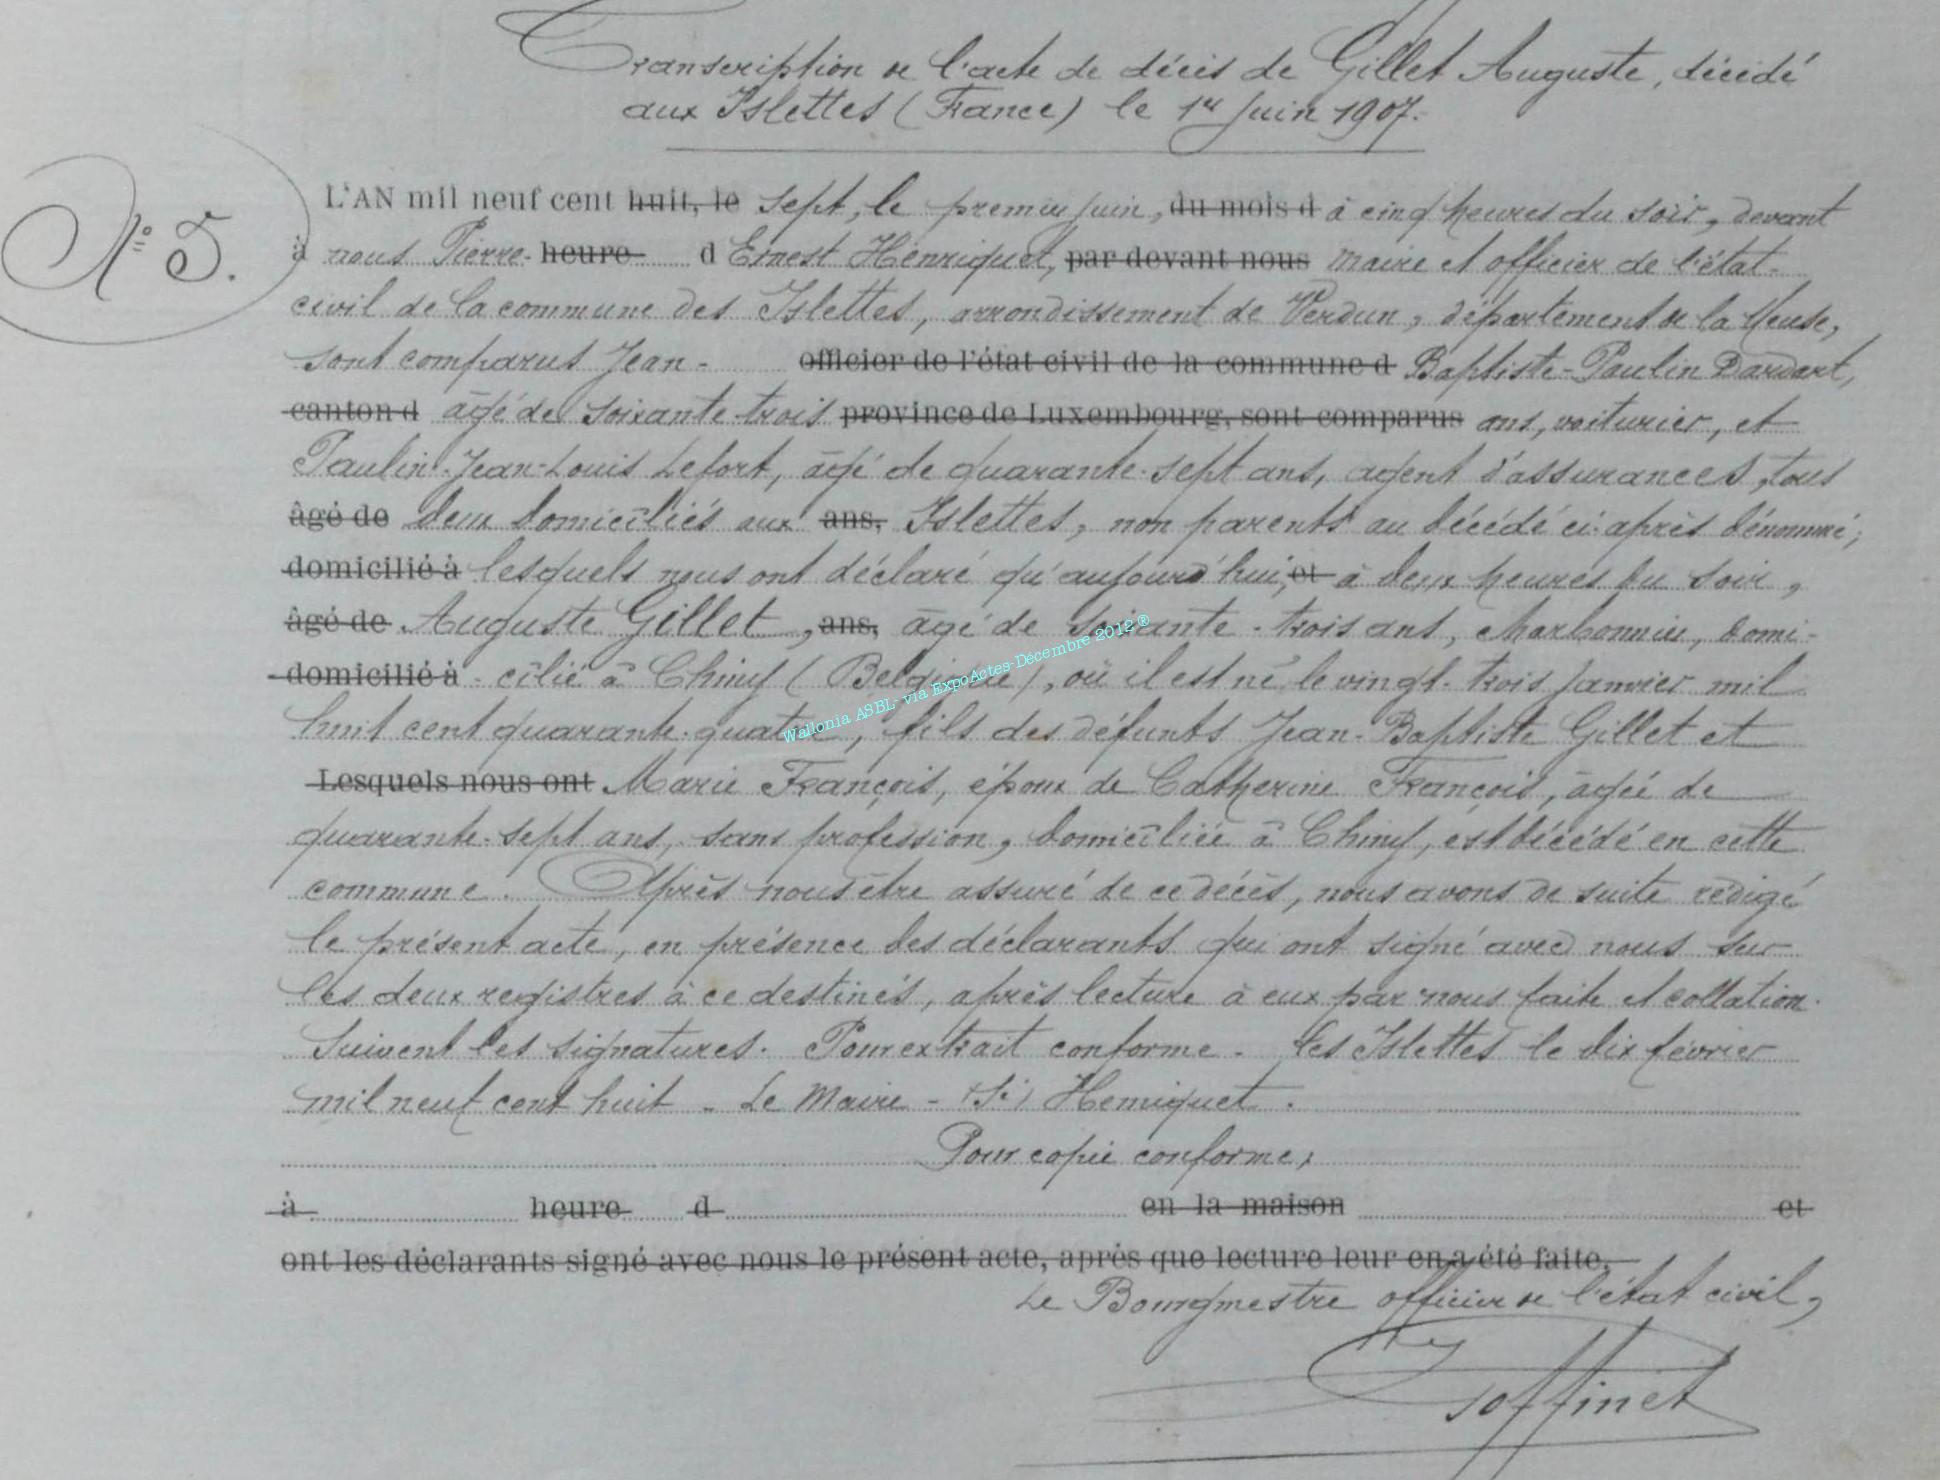 Transcription de l'acte de décès de Gillet Auguste, décédé
aux Islettes (France) le 1er Juin 1907.
N° 5.
L'AN mil neuf cent huit, le sept, le premier juin, du mois d à cinq heures du soir, devant
à nous Pierre- heure d Ernest Henriquet, par devant nous maire et officier de l'état-
civil de la commune des Islettes, arrondissement de Verdun, département de la Meuse,
sont comparus Jean- officier de l'état civil de la commune d Baptiste-Paulin Dardart,
canton d âgé de soixante trois province de Luxembourg, sont comparus ans, voiturier, et
Paulin-Jean-Louis Lefort, âgé de quarante-sept ans, agent d'assurances, tous
âgé de deux domiciliés aux ans, Islettes, non parents au décédé ci-après dénommé;
domicilié à lesquels nous ont déclaré qu'aujourd'hui, et à deux heures du soir,
âgé de Auguste Gillet, ans, âgé de soixante-trois ans, charbonnier, domi-
domicilié à -cilié à Chiny (Belgique), où il est né le vingt-trois janvier mil
huit cent quarante-quatre, fils des défunts Jean-Baptiste Gillet et
Lesquels nous ont Marie François, époux de Catherine François, âgée de
quarante-sept ans, sans profession, domiciliée à Chiny, est décédé en cette
commune. Après nous être assuré de ce décès, nous avons de suite rédigé
le présent acte, en présence des déclarants qui ont signé avec nous sur
les deux registres à ce destinés, après lecture à eux par nous faite et collation.
Suivent les signatures. Pour extrait conforme. Les Islettes le dix février
mil neuf cent huit - Le Maire - (Sé) Henriquet.
Pour copie conforme,
à heure d en la maison et
ont les déclarants signé avec nous le présent acte, après que lecture leur en a été faite.
Le Bourgmestre officier de l'état civil,
Goffinet
Wallonia ASBL- via ExpoActes-Décembre 2012®